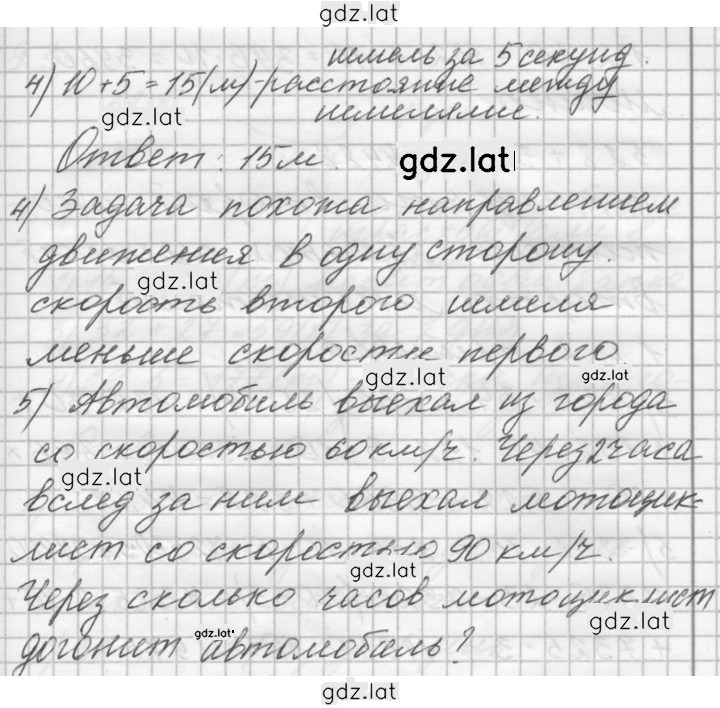 gdz.lat
шмель за 5 секунд.
4) 10+5=15(м)-расстояние между
шмелями.
gdz.lat
Ответ: 15м
gdz.lat
4) Задача похожа направлением
движения в одну сторону.
gdz.lat
скорость второго шмеля
меньше скорости первого.
gdz.lat
gdz.lat
5) Автомобиль выехал из города
со скоростью 60км/ч. Через 2 часа
gdz.lat
вслед за ним выехал мотоцик-
лист со скоростью 90 км/ч.
gdz.lat
Через сколько часов мотоциклист
gdz.lat
gdz.lat
догонит автомобиль?
gdz.lat